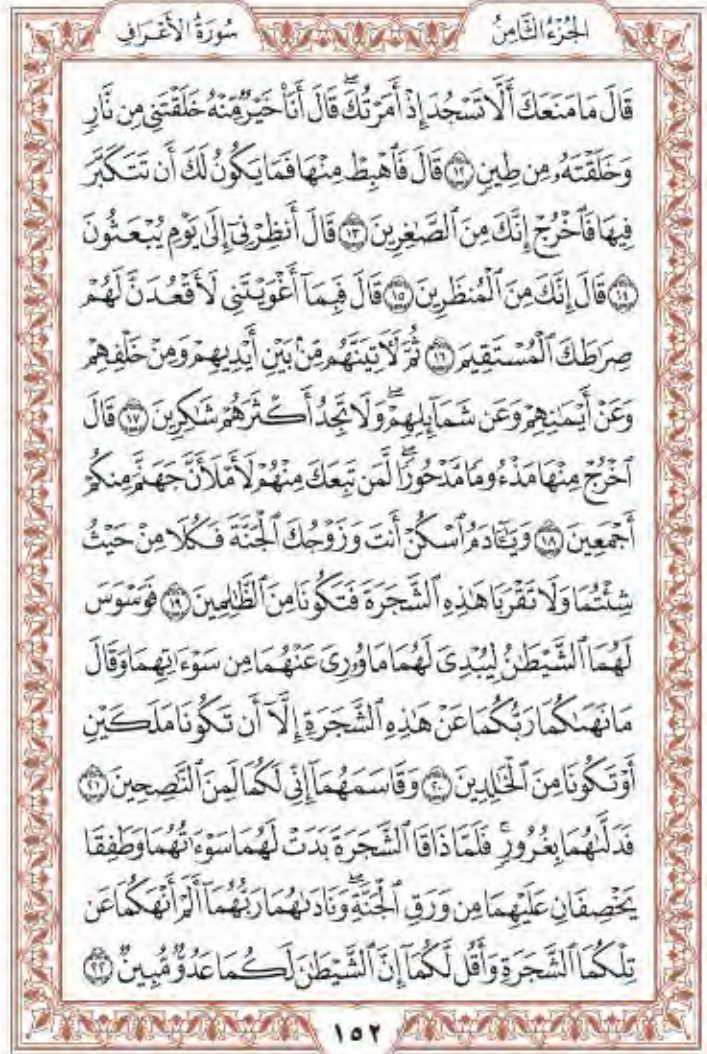 الجُزْءُ الثَّامِنُ
سُورَةُ الأَعْرَافِ
قَالَ مَا مَنَعَكَ أَلَّا تَسْجُدَ إِذْ أَمَرْتُكَۖ قَالَ أَنَا۠ خَيْرٌ مِّنْهُ خَلَقْتَنِي مِن نَّارٍ
وَخَلَقْتَهُۥ مِن طِينٍ ١٢ قَالَ فَٱهْبِطْ مِنْهَا فَمَا يَكُونُ لَكَ أَن تَتَكَبَّرَ
فِيهَا فَٱخْرُجْ إِنَّكَ مِنَ ٱلصَّٰغِرِينَ ١٣ قَالَ أَنظِرْنِيٓ إِلَىٰ يَوْمِ يُبْعَثُونَ
١٤ قَالَ إِنَّكَ مِنَ ٱلْمُنظَرِينَ ١٥ قَالَ فَبِمَآ أَغْوَيْتَنِي لَأَقْعُدَنَّ لَهُمْ
صِرَٰطَكَ ٱلْمُسْتَقِيمَ ١٦ ثُمَّ لَءَاتِيَنَّهُم مِّنۢ بَيْنِ أَيْدِيهِمْ وَمِنْ خَلْفِهِمْ
وَعَنْ أَيْمَٰنِهِمْ وَعَن شَمَآئِلِهِمْۖ وَلَا تَجِدُ أَكْثَرَهُمْ شَٰكِرِينَ ١٧ قَالَ
ٱخْرُجْ مِنْهَا مَذْءُومًا مَّدْحُورًاۖ لَّمَن تَبِعَكَ مِنْهُمْ لَأَمْلَأَنَّ جَهَنَّمَ مِنكُمْ
أَجْمَعِينَ ١٨ وَيَٰٓـَٔادَمُ ٱسْكُنْ أَنتَ وَزَوْجُكَ ٱلْجَنَّةَ فَكُلَا مِنْ حَيْثُ
شِئْتُمَا وَلَا تَقْرَبَا هَٰذِهِ ٱلشَّجَرَةَ فَتَكُونَا مِنَ ٱلظَّٰلِمِينَ ١٩ فَوَسْوَسَ
لَهُمَا ٱلشَّيْطَٰنُ لِيُبْدِيَ لَهُمَا مَا وُۥرِيَ عَنْهُمَا مِن سَوْءَٰتِهِمَا وَقَالَ
مَا نَهَىٰكُمَا رَبُّكُمَا عَنْ هَٰذِهِ ٱلشَّجَرَةِ إِلَّآ أَن تَكُونَا مَلَكَيْنِ
أَوْ تَكُونَا مِنَ ٱلْخَٰلِدِينَ ٢٠ وَقَاسَمَهُمَآ إِنِّي لَكُمَا لَمِنَ ٱلنَّٰصِحِينَ ٢١
فَدَلَّىٰهُمَا بِغُرُورٍۚ فَلَمَّا ذَاقَا ٱلشَّجَرَةَ بَدَتْ لَهُمَا سَوْءَٰتُهُمَا وَطَفِقَا
يَخْصِفَانِ عَلَيْهِمَا مِن وَرَقِ ٱلْجَنَّةِۖ وَنَادَىٰهُمَا رَبُّهُمَآ أَلَمْ أَنْهَكُمَا عَن
تِلْكُمَا ٱلشَّجَرَةِ وَأَقُل لَّكُمَآ إِنَّ ٱلشَّيْطَٰنَ لَكُمَا عَدُوٌّ مُّبِينٌ ٢٢
١٥٢